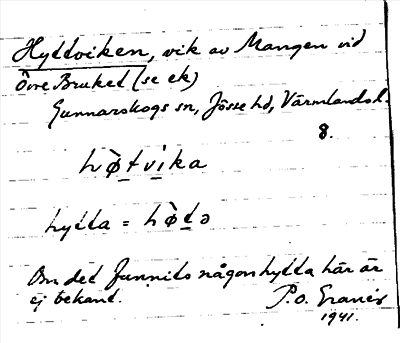 Hyttviken, vik av Mangen vid
Övre Bruket (se ek)
Gunnarskogs sn, Jösse hd, Värmlands l.
8.
hø̀tvika
hytta = hø̀tə
Om det funnits någon hytta här är
ej bekant.
P.O.
1941.